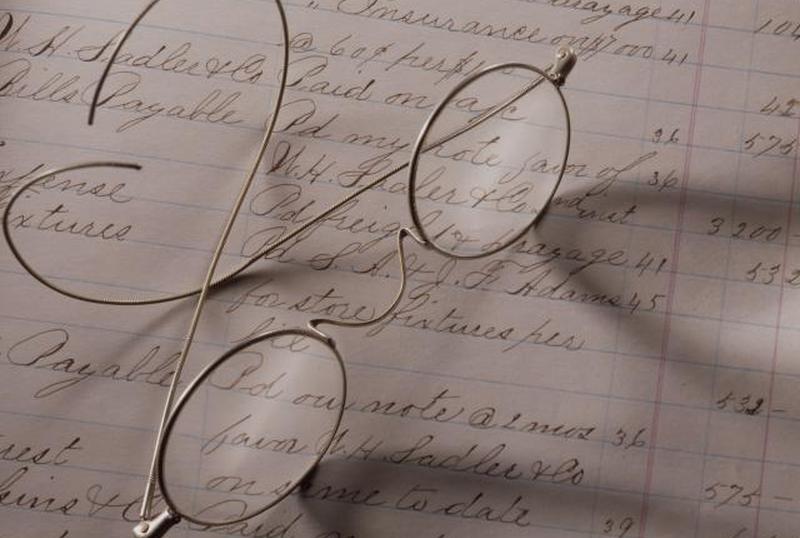 Insurance on $7000 41
W. H. Sadler & Co @ 60¢ per $
Bills Payable Paid on a/c 42
Pd my note favor of 36 575
W. H. Sadler & Co and int 36
Expense Pd freight & drayage 41 3200 -
Fixtures Pd S. A. & J. F. Adams 45 532
for store fixtures per
bill
Payable Pd our note @ 2 mos 36 532 -
favor W. H. Sadler & Co
on same to date 575 -
Paid 39